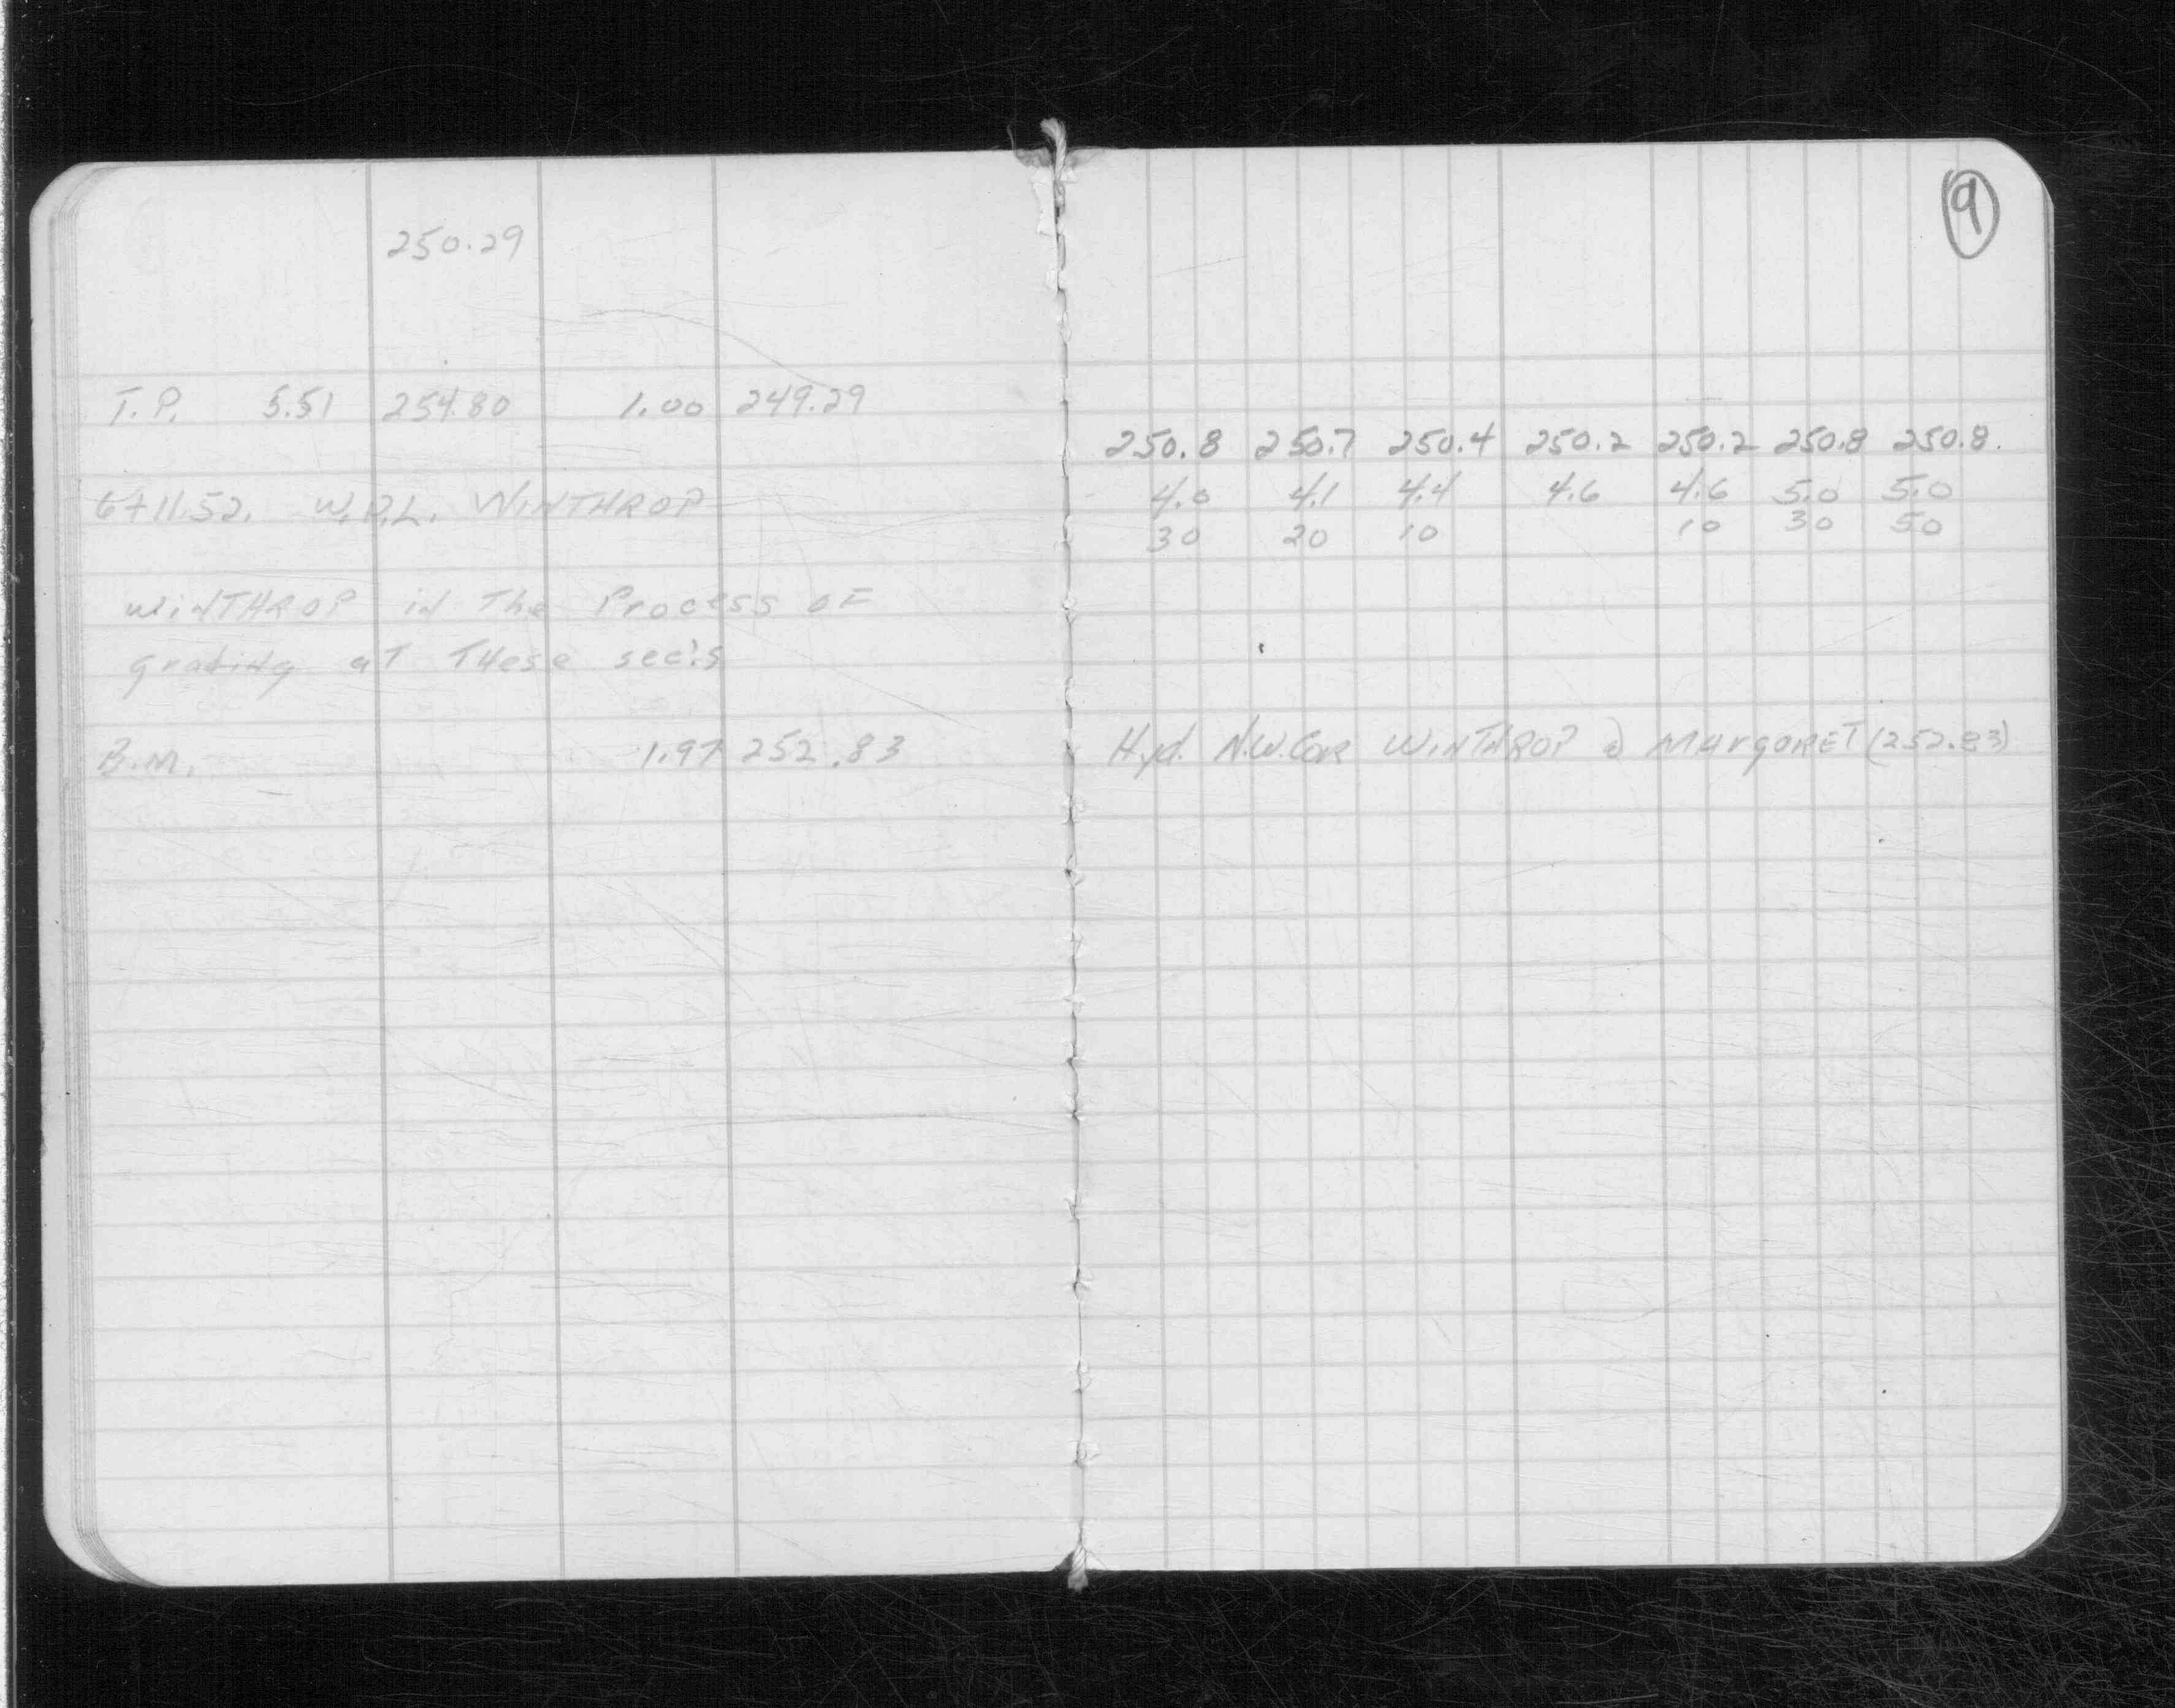 250.29
T.P. 5.51 254.80 1.00 249.29
6+11.52. W.P.L. WINTHROP
WINTHROP in The Process OF
grading at These sec's
B.M. 1.97 252.83
9
250.8 250.7 250.4 250.2 250.2 250.8 250.8.
4.0 4.1 4.4 4.6 4.6 5.0 5.0
30 20 10 10 30 50
Hyd. N.W. Cor WINTHROP @ MargoRET (252.83)